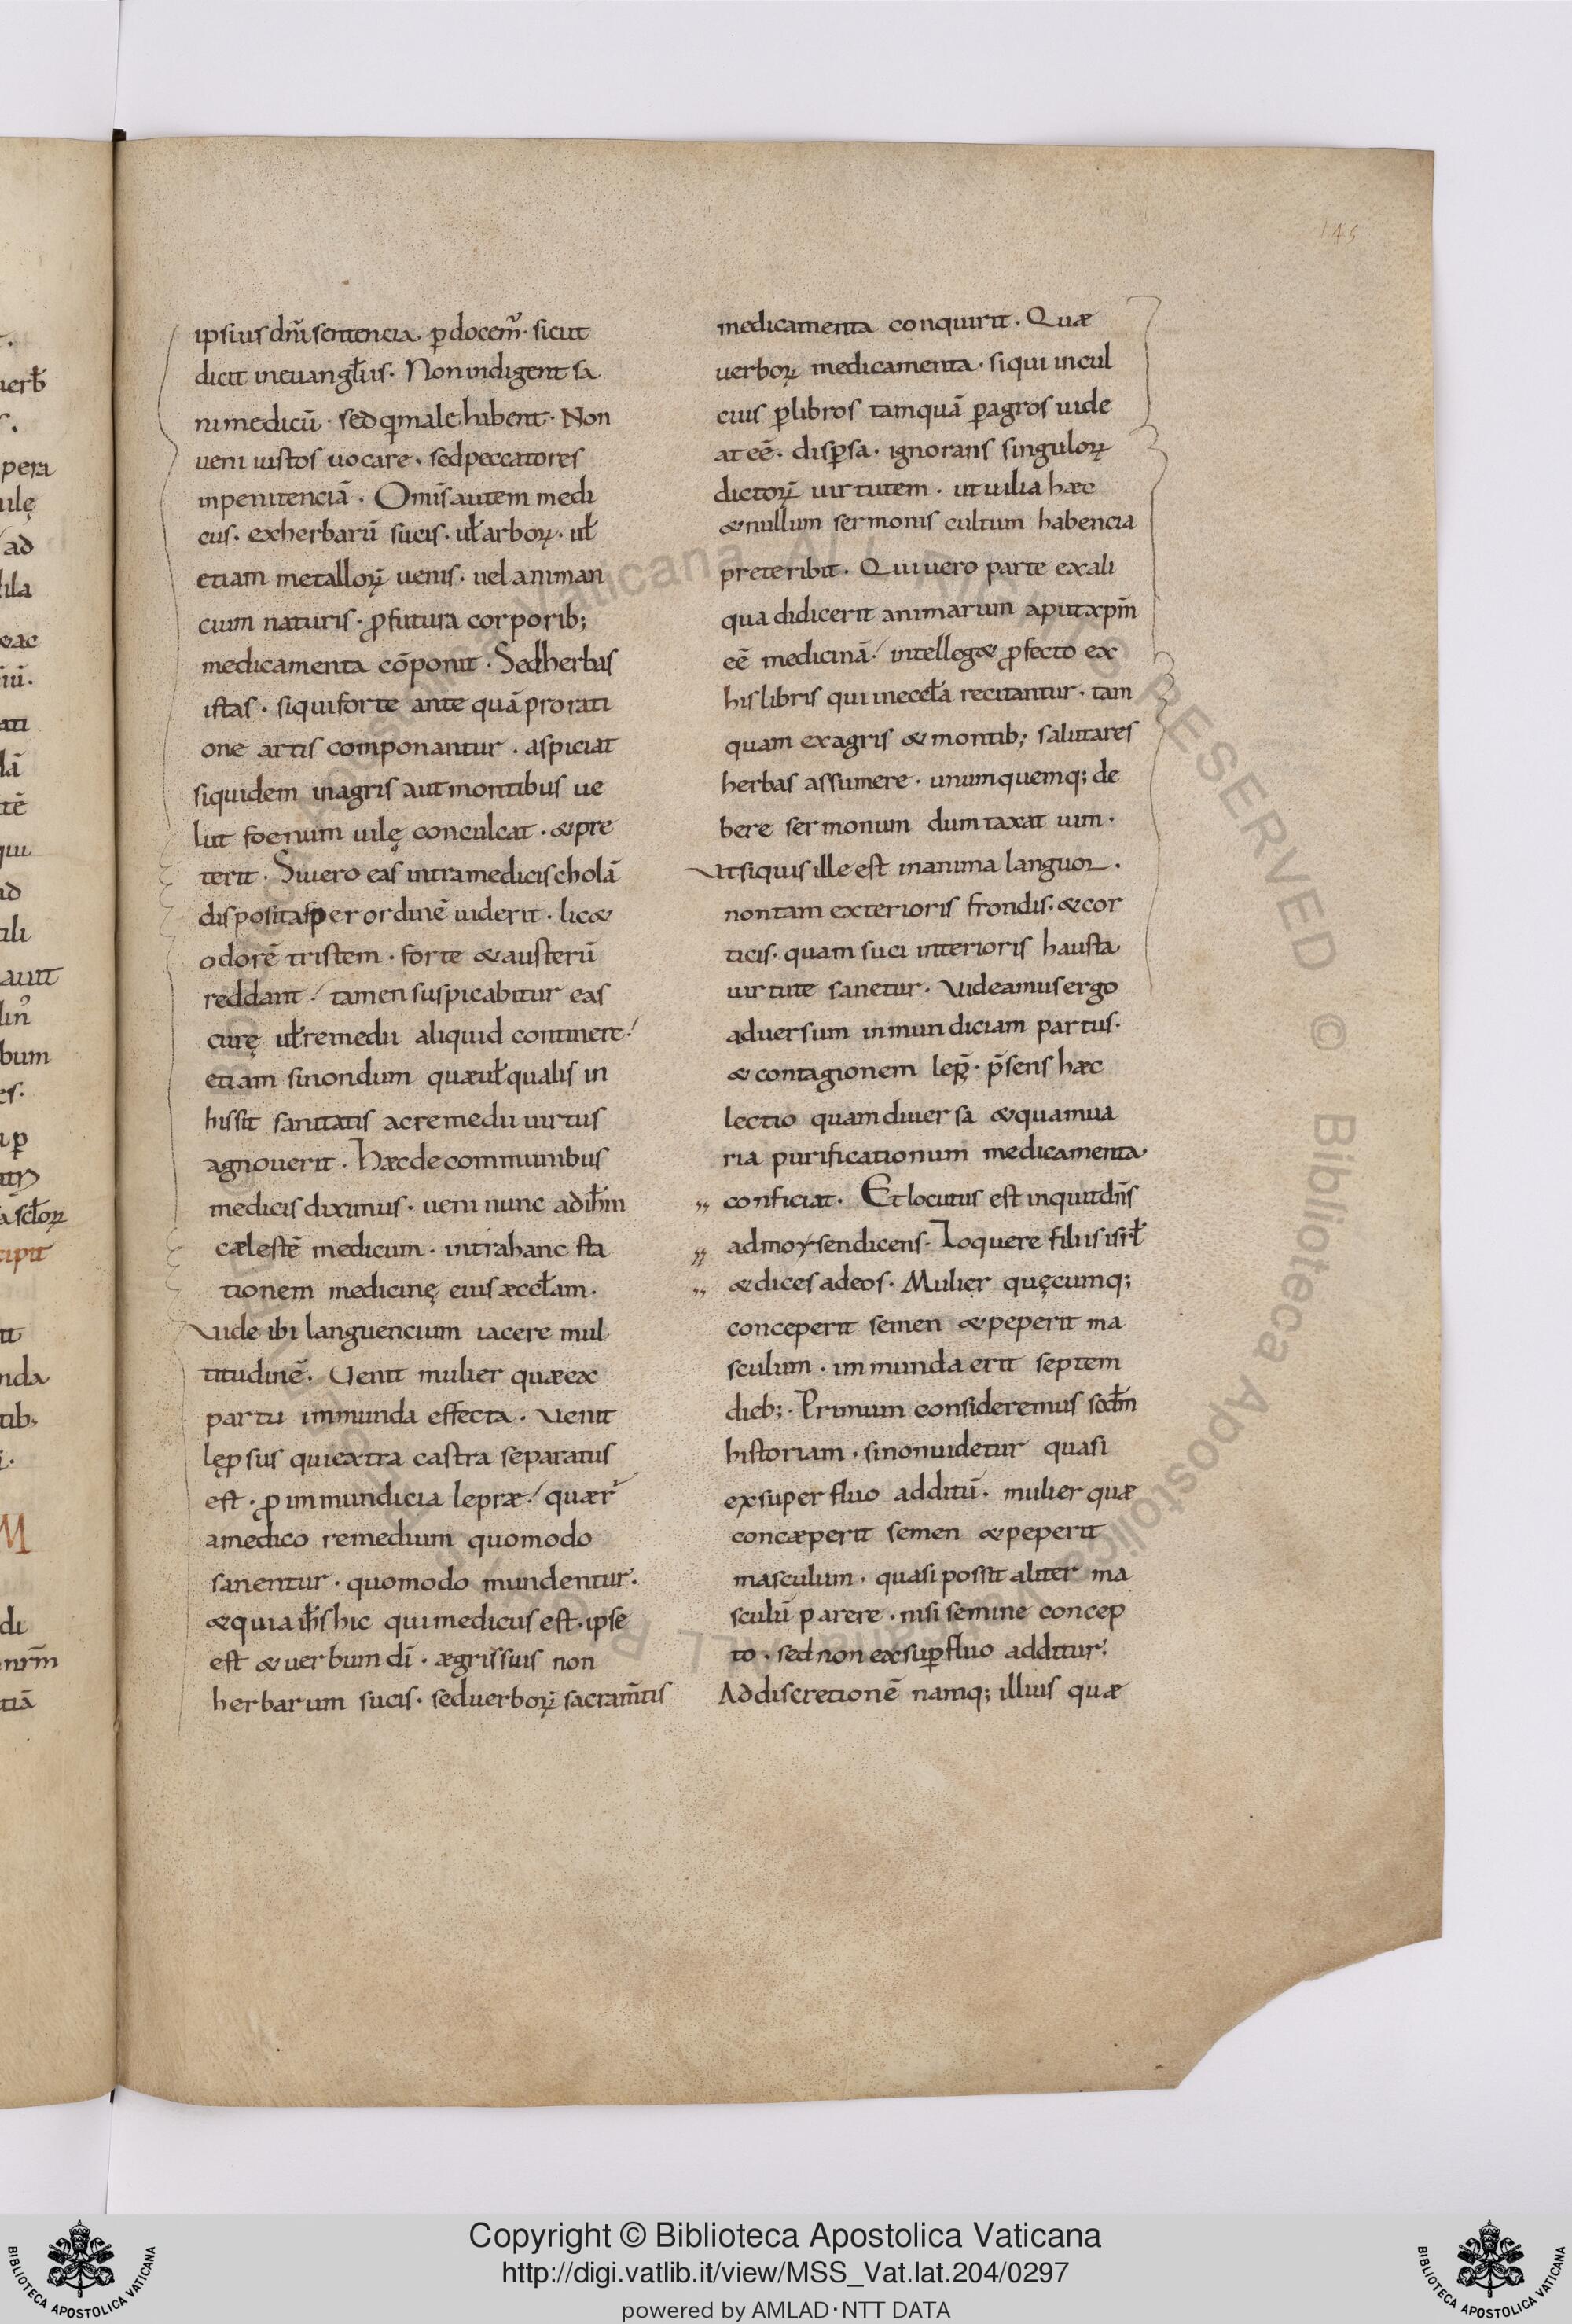 145
ipsius dn̄i sentencia. ꝑdocem̅ᷣ. sicut
dicit ineuangłiis. Nonindigent sa
ni medicū. sed q̄male habent. Non
ueni iustos uocare. sedpeccatores
inpenitenciā. Omīs autem medi
cus. exherbarū sucis. uł arboꝝ. uł
etiam metalloꝝ uenis. uel animan
cium naturis. ꝓfutura corporib;
medicamenta cōponit. Sed herbas
istas. siquiforte ante quā pro rati
one artis componantur. aspiciat
siquidem inagris aut montibus ue
lut foenum uilę conculcat. & pre
terit. Siuero eas intramedici scholā
dispositas per ordinē uiderit. lic&
odorē tristem. forte & austerū
reddant. tamen suspicabitur eas
curę uł remedii aliquid continere.
etiam sinondum quæuł qualis in
hissit sanitatis acremedii uirtus
agnouerit. Hæc decommunibus
medicis diximus. ueni nunc adih̄m
cælestē medicum. intrahanc sta
tionem medicinę eius æccłam.
Vide ibi languencium iacere mul
titudinē. Uenit mulier quæex
partu immunda effecta. Venit
lęp sus quiextra castra separatus
est. ꝓ immundicia lepræ. quær̄
amedico remedium quomodo
sanentur. quomodo mundentur.
& quia ih̄s hic qui medicus est. ipse
est & uerbum dī. ægris suis non
herbarum sucis. seduerboꝝ sacram̄tis
medicamenta conquirit. Quæ
uerboꝝ medicamenta. siqui incul
cius ꝑlibros tamquā ꝑagros uide
at eē. disꝑsa. ignorans singuloꝝ
dictoꝝ uirtutem. ut uilia hæc
& nullum sermonis cultum habencia
preteribit. Qui uero parte exali
qua didicerit animarum aputxpm̄
eē medicinā. intelleg& ꝓfecto ex
his libris qui ineccła recitantur. tam
quam exagris & montib; salutares
herbas assumere. unumquemq; de
bere sermonum dumtaxat uim.
Vt siquis ille est inanima languor.
nontam exterioris frondis. & cor
ticis. quam suci interioris hausta
uirtute sanetur. Videamus ergo
aduersum inmundiciam partus.
& contagionem lep̄ę. p̄sens hæc
lectio quam diuersa & quamua
ria purificationum medicamenta
,, conficiat. Et locutus est inquit dn̄s
,, admoysen dicens. Loquere filiis isrł
,, & dices adeos. Mulier quęcumq;
conceperit semen & peperit ma
sculum. immunda erit septem
dieb;. Primum consideremus scd̄m
historiam. sinonuidetur quasi
exsuper fluo additū. mulier quæ
concæperit semen & peperit
masculum. quasi possit aliter ma
sculū parere. nisi semine concep
to. sed non exsuꝑfluo additur.
Ad discretionē namq; illius quæ
Copyright © Biblioteca Apostolica Vaticana
http://digi.vatlib.it/view/MSS_Vat.lat.204/0297
powered by AMLAD·NTT DATA